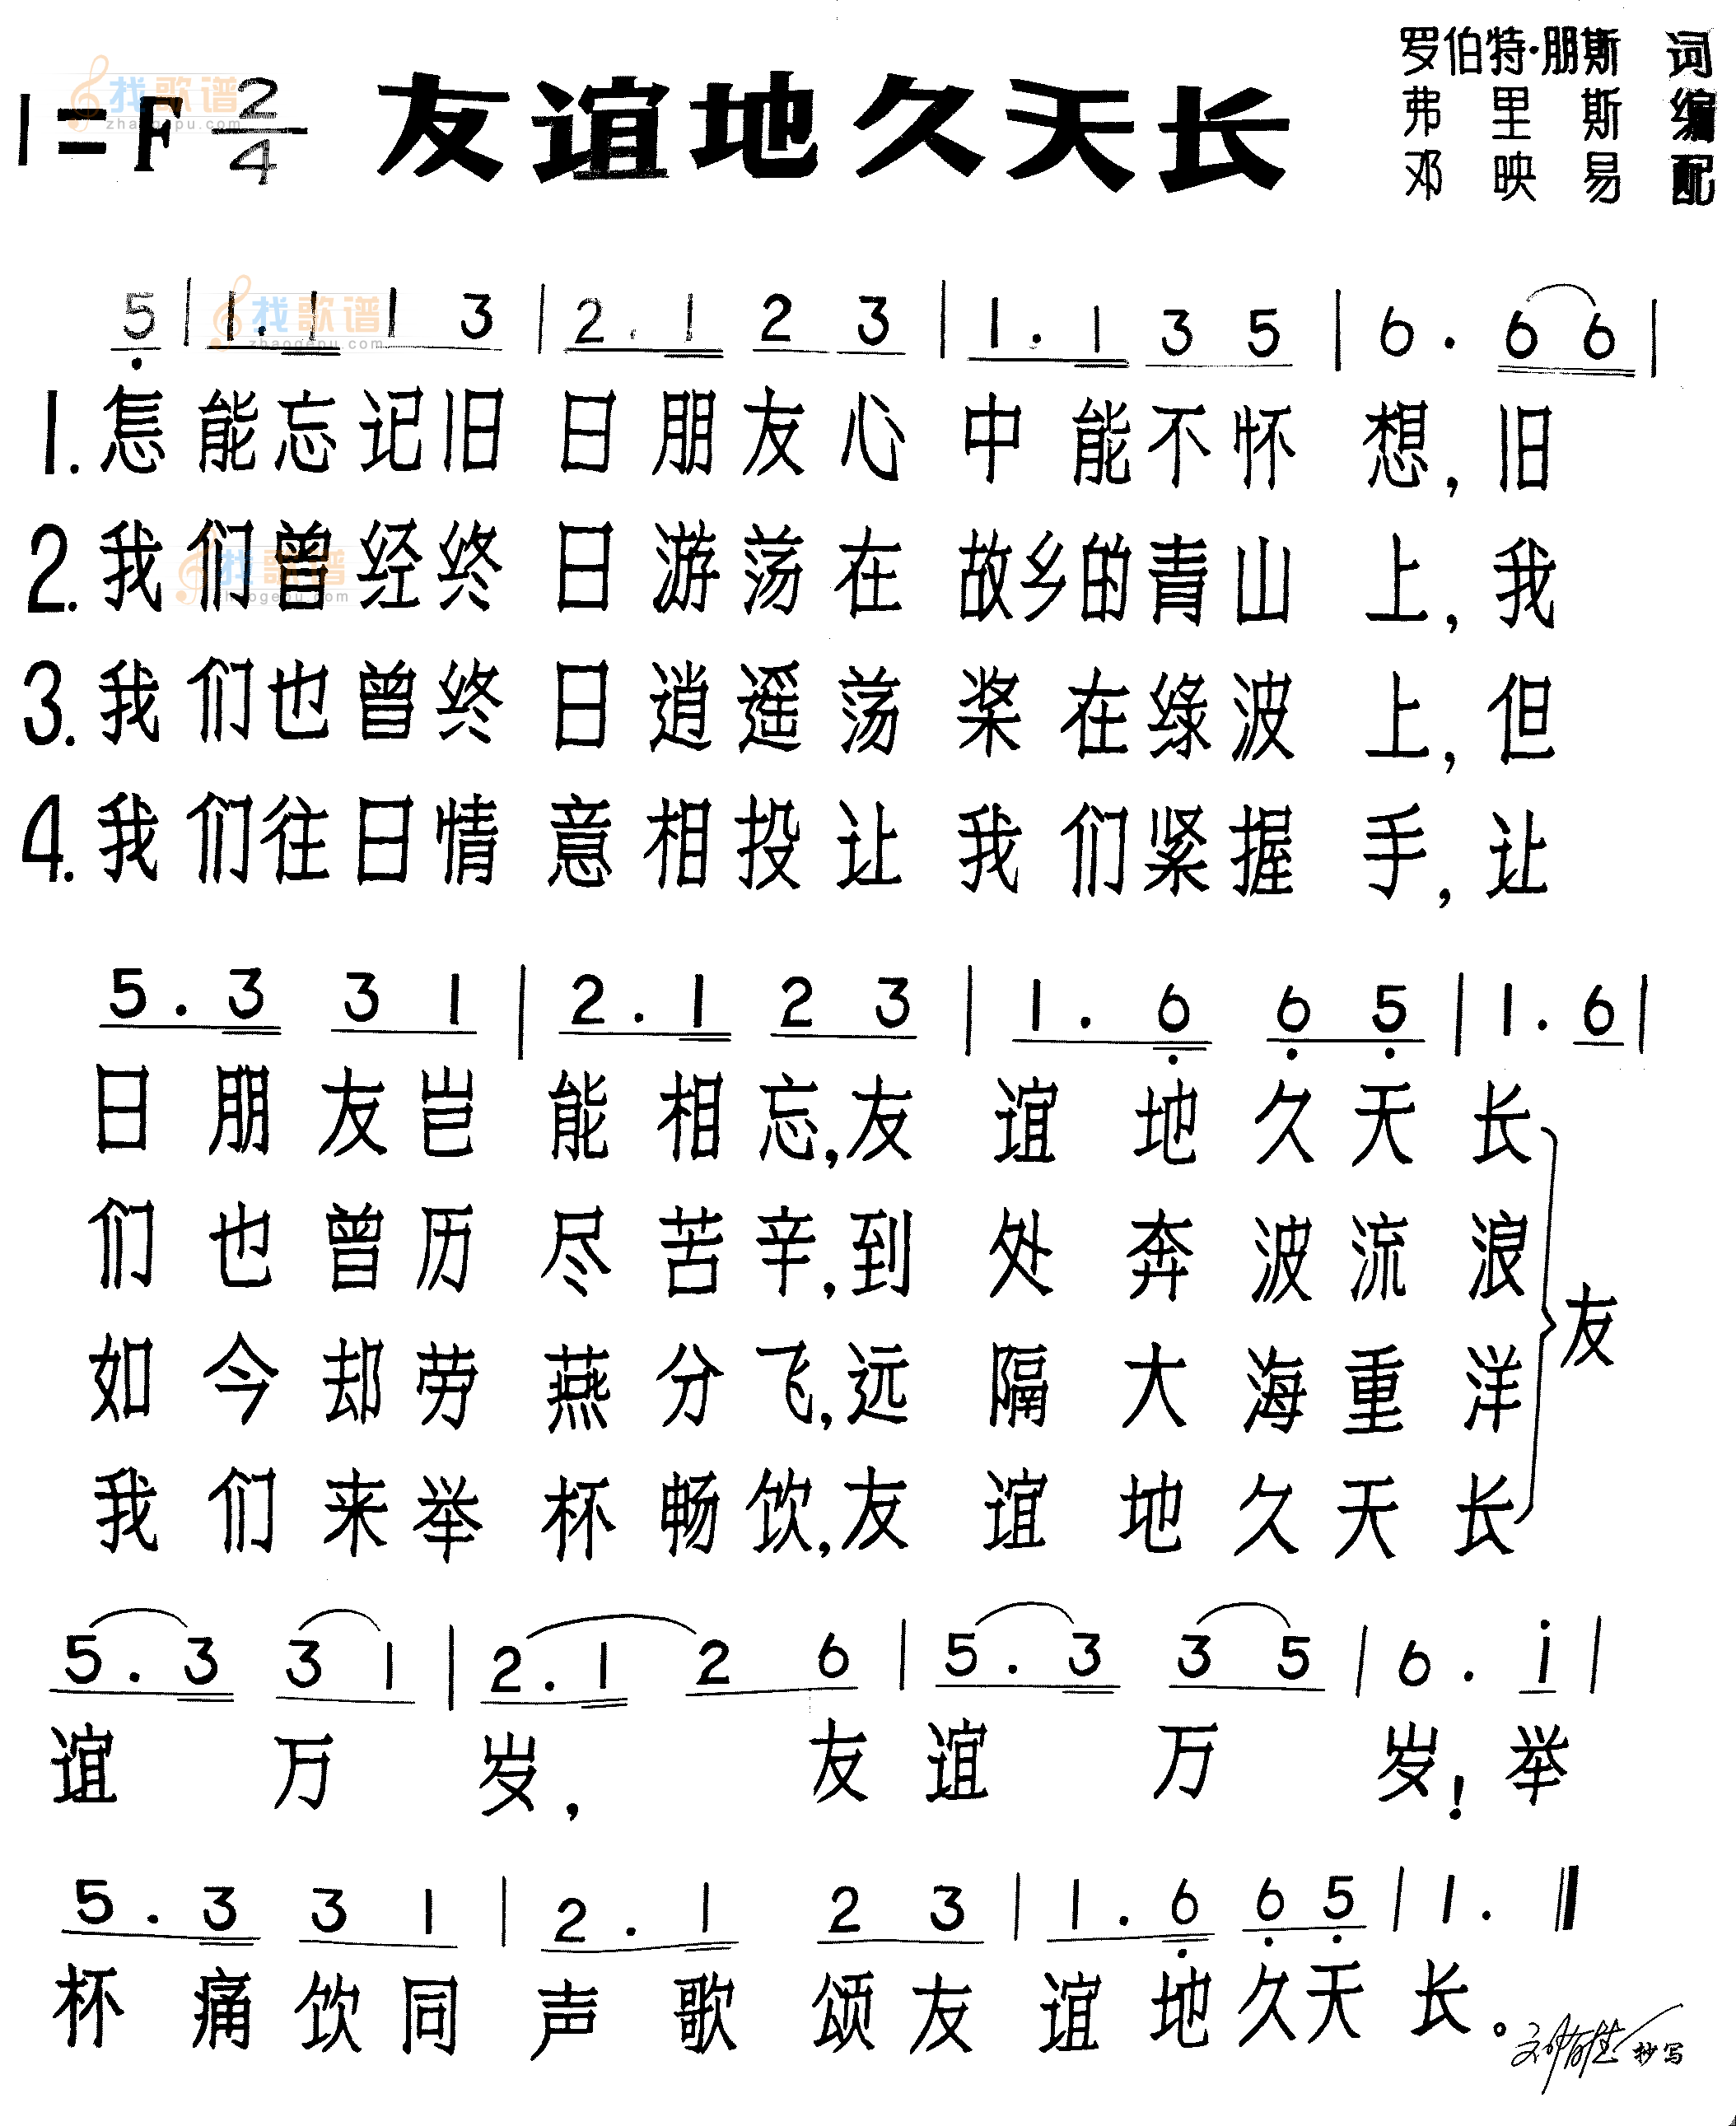 罗伯特·朋斯 词
弗里斯 编
邓映易 配
1=F 2/4 友谊地久天长
找歌谱
zhaogepu.com
5 | 1. 1 1 3 | 2. 1 2 3 | 1. 1 3 5 | 6. 6 6 |
找歌谱
zhaogepu.com
1. 怎能忘记旧日朋友心中能不怀想,旧
2. 我们曾经终日游荡在故乡的青山上,我
找歌谱
zhaogepu.com
3. 我们也曾终日逍遥荡桨在绿波上,但
4. 我们往日情意相投让我们紧握手,让
5. 3 3 1 | 2. 1 2 3 | 1. 6 6 5 | 1. 6 |
日朋友岂能相忘,友谊地久天长
们也曾历尽苦辛,到处奔波流浪
友
如今却劳燕分飞,远隔大海重洋
我们来举杯畅饮,友谊地久天长
5. 3 3 1 | 2. 1 2 6 | 5. 3 3 5 | 6. i |
谊万岁,友谊万岁!举
5. 3 3 1 | 2. 1 2 3 | 1. 6 6 5 | 1. ‖
杯痛饮同声歌颂友谊地久天长。
抄写